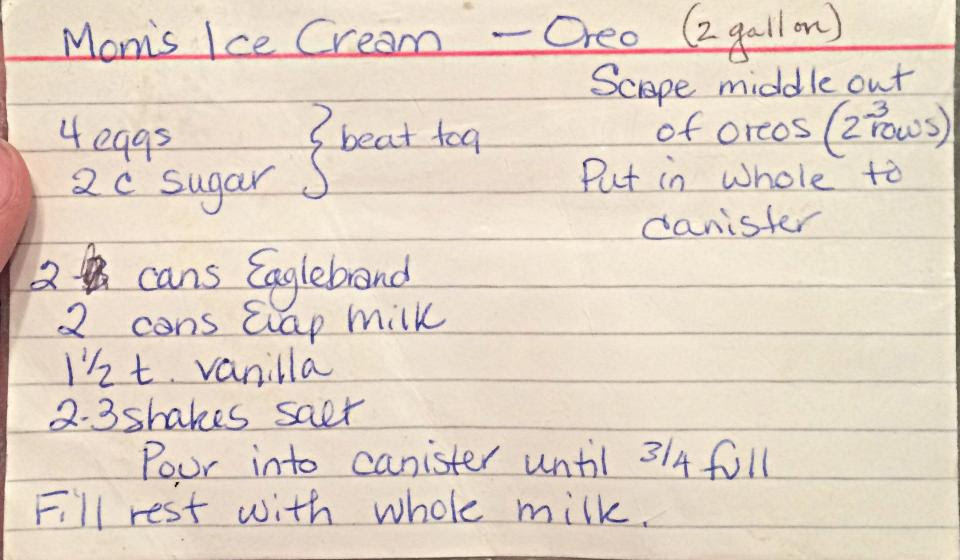 Mom's Ice Cream — Oreo (2 gallon)
Scrape middle out
of oreos (2 3 rows)
Put in whole to
canister
4 eggs } beat tog
2 c sugar
2 cans Eaglebrand
2 cans Evap milk
1 1/2 t. vanilla
2-3 shakes salt
Pour into canister until 3/4 full
Fill rest with whole milk.